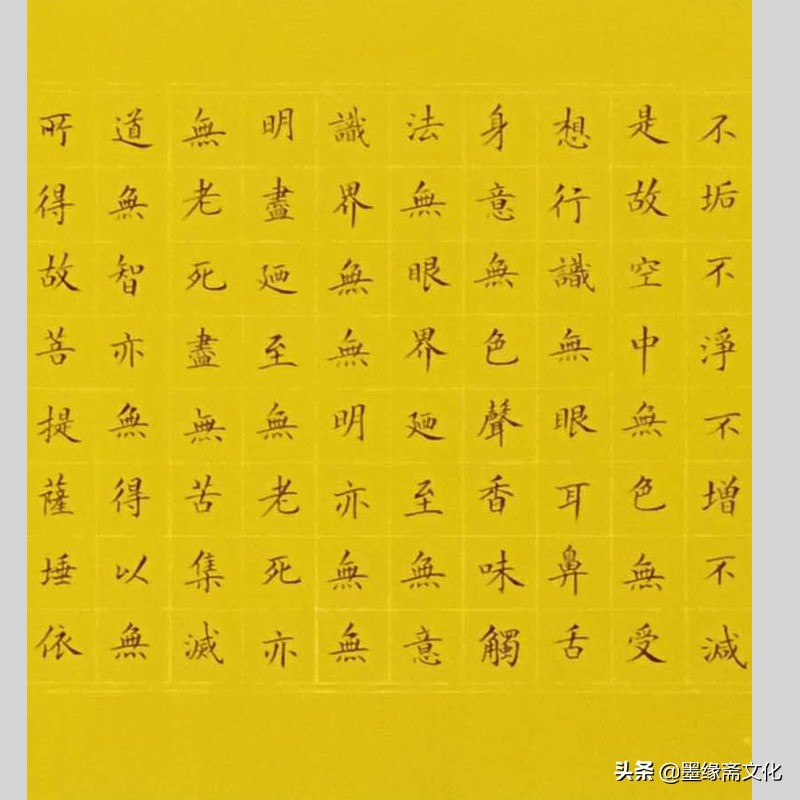 不垢不淨不增不減
是故空中無色無受
想行識無眼耳鼻舌
身意無色聲香味觸
法無眼界廼至無意
識界無無明亦無無
明盡廼至無老死亦
無老死盡無苦集滅
道無智亦無得以無
所得故菩提薩埵依
头条 @墨缘斋文化